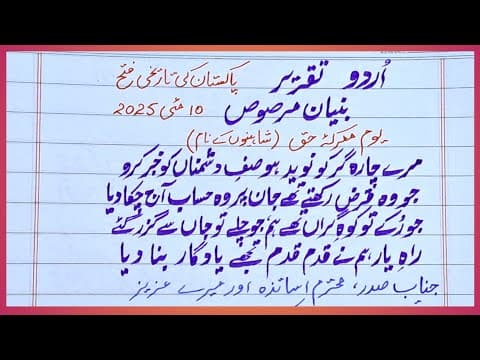 اُردو تقریر پاکستان کی تاریخی فتح
بنیان مرصوص 10 مئی 2025
یوم معرکۂ حق (شاہینوں کے نام)
مرے چارہ گر کو نوید ہو صفِ دشمناں کو خبر کرو
جو وہ قرض رکھتے تھے جان پر وہ حساب آج چکا دیا
جو رُکے تو کوہ گراں تھے ہم جو چلے تو جاں سے گزر گئے
راہِ یار ہم نے قدم قدم تجھے یادگار بنا دیا
جنابِ صدر، محترم اساتذہ اور میرے عزیز